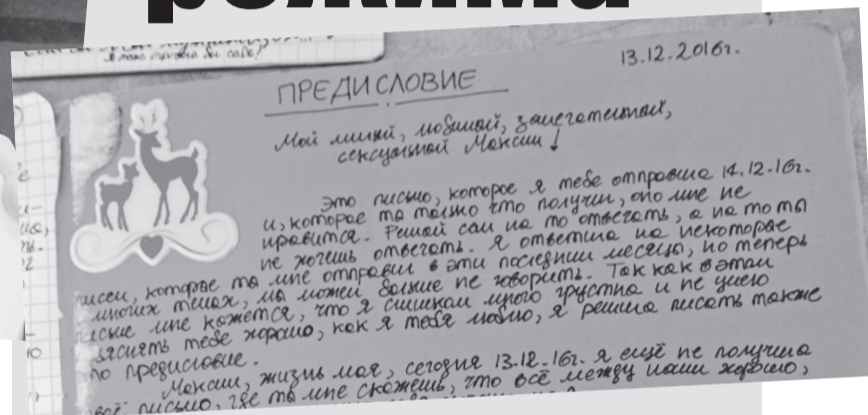 режима
я тоже
13.12.2016г.
ПРЕДИСЛОВИЕ
Мой милый, любимый, замечательный,
сексуальный Максим!
Это письмо, которое я тебе отправила 14.12.16г.
и, которое ты только что получил, оно мне не
нравится. Решай сам на что отвечать, а на что ты
не хочешь отвечать. Я ответила на некоторые
писем, которые ты мне отправил в эти последнии месяцы, но теперь
многих темах, мы можем больше не говорить. Так как в этом
письме мне кажется, что я слишком много грустна и не умею
яснять тебе хорошо, как я тебя люблю, я решила писать также
то предисловие.
Максим, жизнь моя, сегодня 13.12.16г. я ещё не получила
твоё письмо, где ты мне скажешь, что всё между нами хорошо,